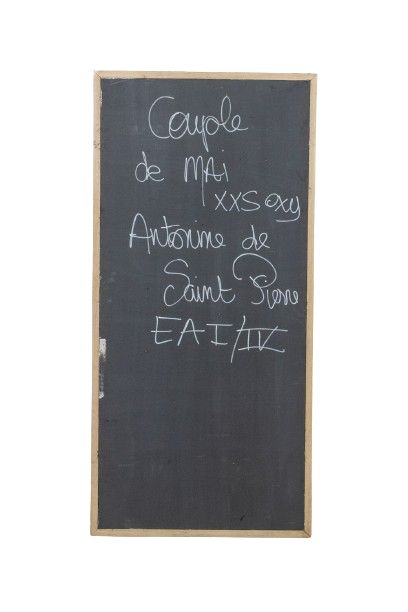 Couple
de MAi
XXS oxy
Antonine de
Saint Pierre
EA I/IV